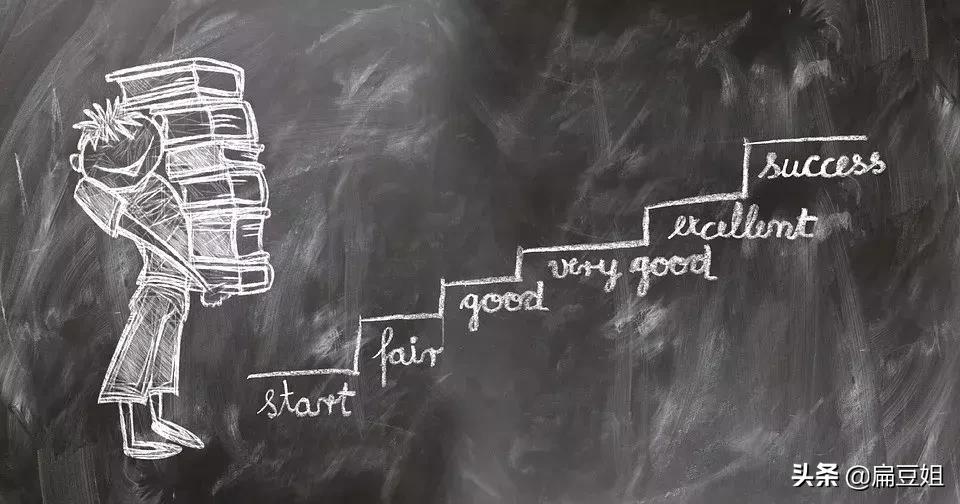 success
excellent
very good
good
fair
start
头条 @扁豆姐